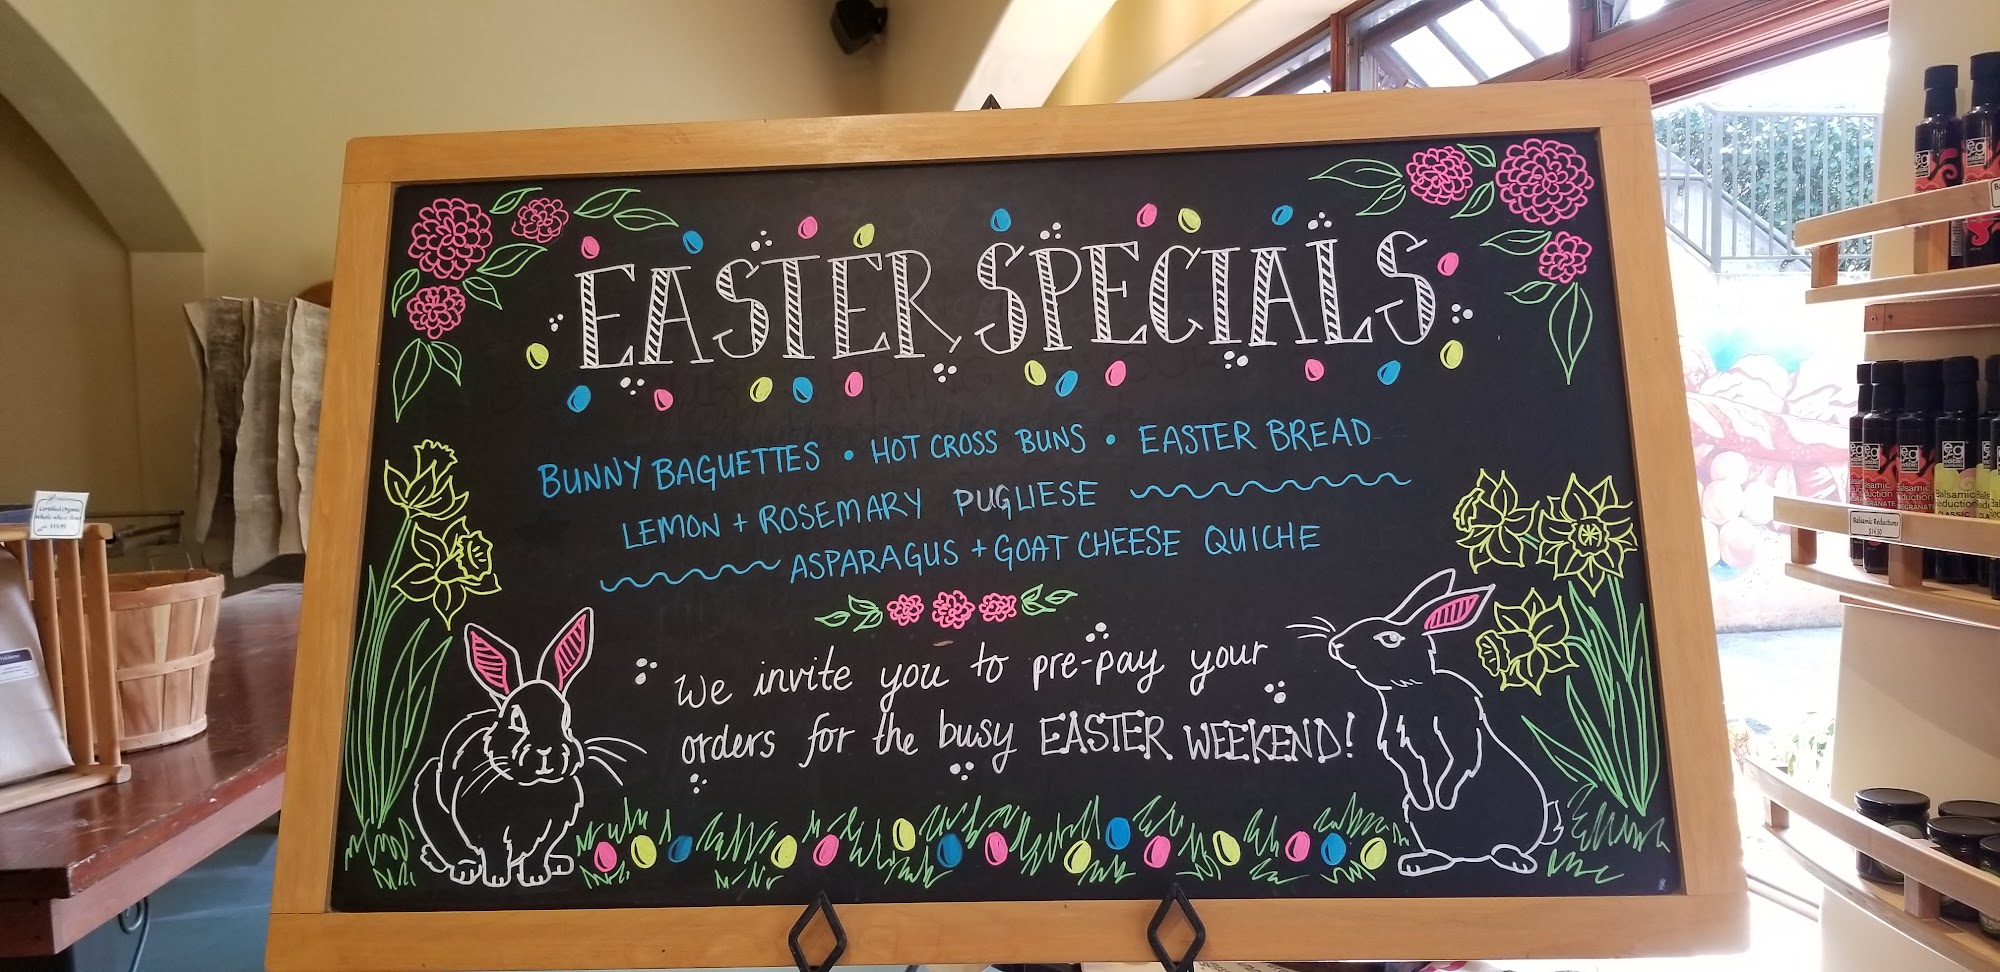 EASTER SPECIALS
BUNNY BAGUETTES • HOT CROSS BUNS • EASTER BREAD
LEMON + ROSEMARY PUGLIESE
ASPARAGUS + GOAT CHEESE QUICHE
We invite you to pre-pay your
orders for the busy EASTER WEEKEND!
Certified Organic
Whole wheat flour
eg
eg
eg
eg
eg
eg
Balsamic
Reduction
Balsamic
Reduction
CLASSIC
Balsamic Reductions
$14.50